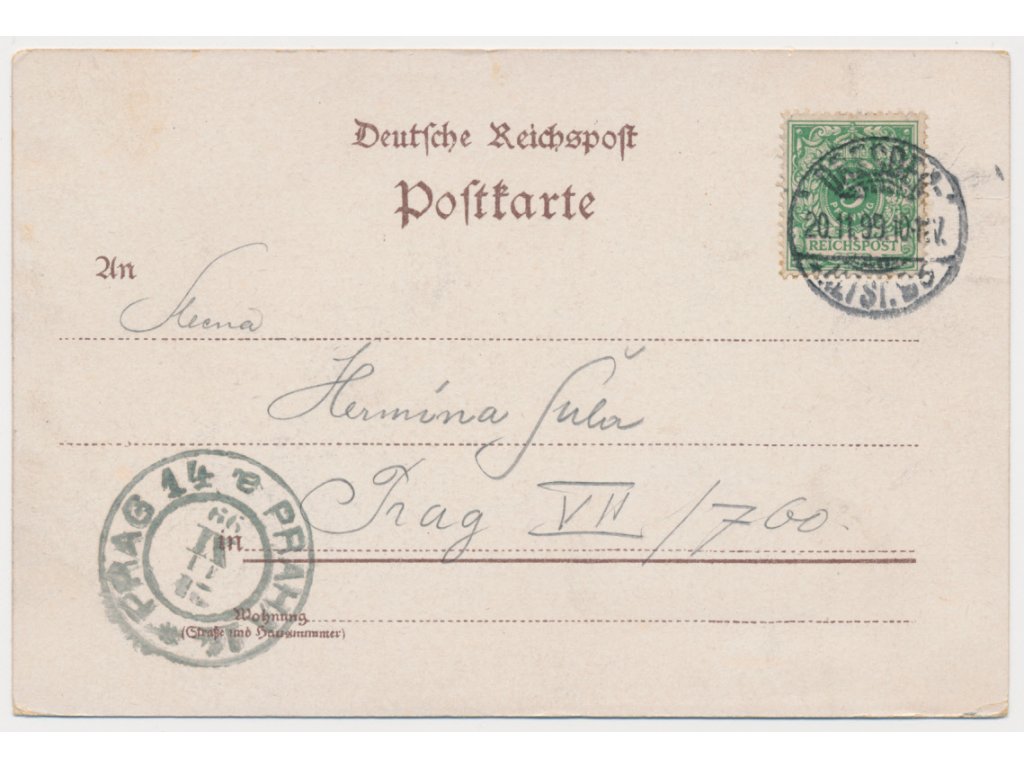 Deutsche Reichspost
Postkarte
REICHSPOST
20.11.99.10-11V.
An
Slečna
Hermína Šula
Prag VII/760.
PRAG 14 e PRAHA 14
99
in
Wohnung
(Straße und Hausnummer)